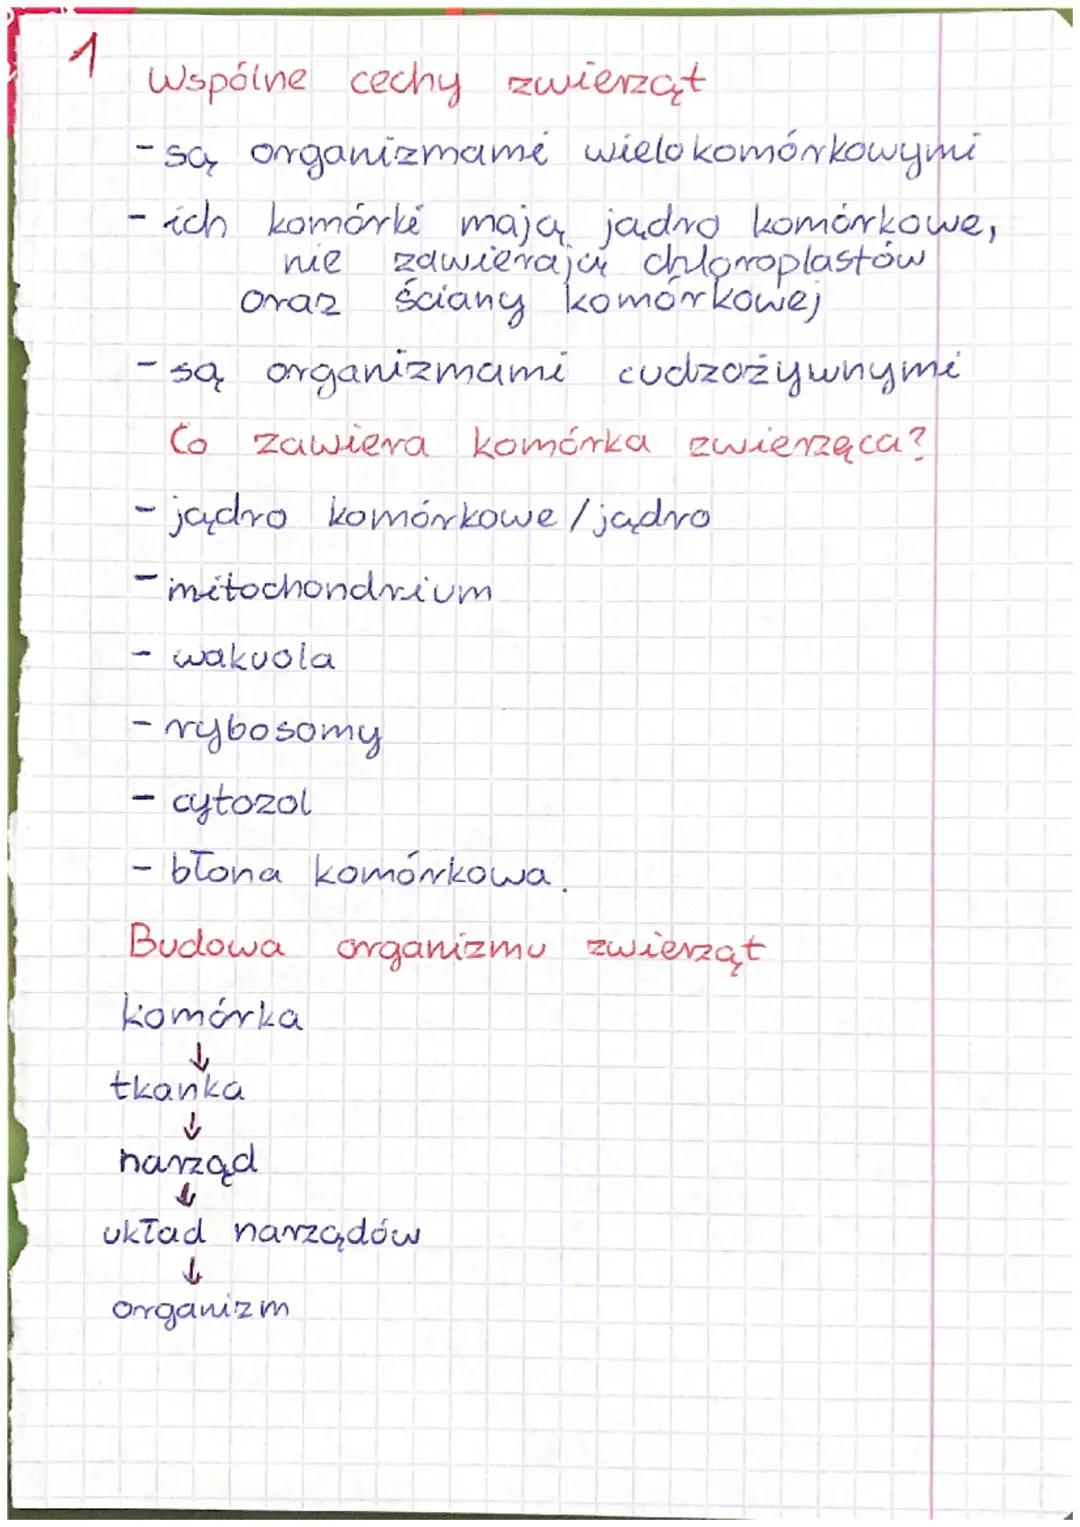 1
Wspólne cechy zwierząt
- są organizmami wielokomórkowymi
- ich komórki mają jądro komórkowe,
nie zawierają chloroplastów
oraz ściany komórkowej
- są organizmami cudzożywnymi
Co zawiera komórka zwierzęca?
- jądro komórkowe / jądro
- mitochondrium
- wakuola
- rybosomy
- cytozol
- błona komórkowa.
Budowa organizmu zwierząt
komórka
↓
tkanka
↓
narząd
↓
układ narządów
↓
organizm